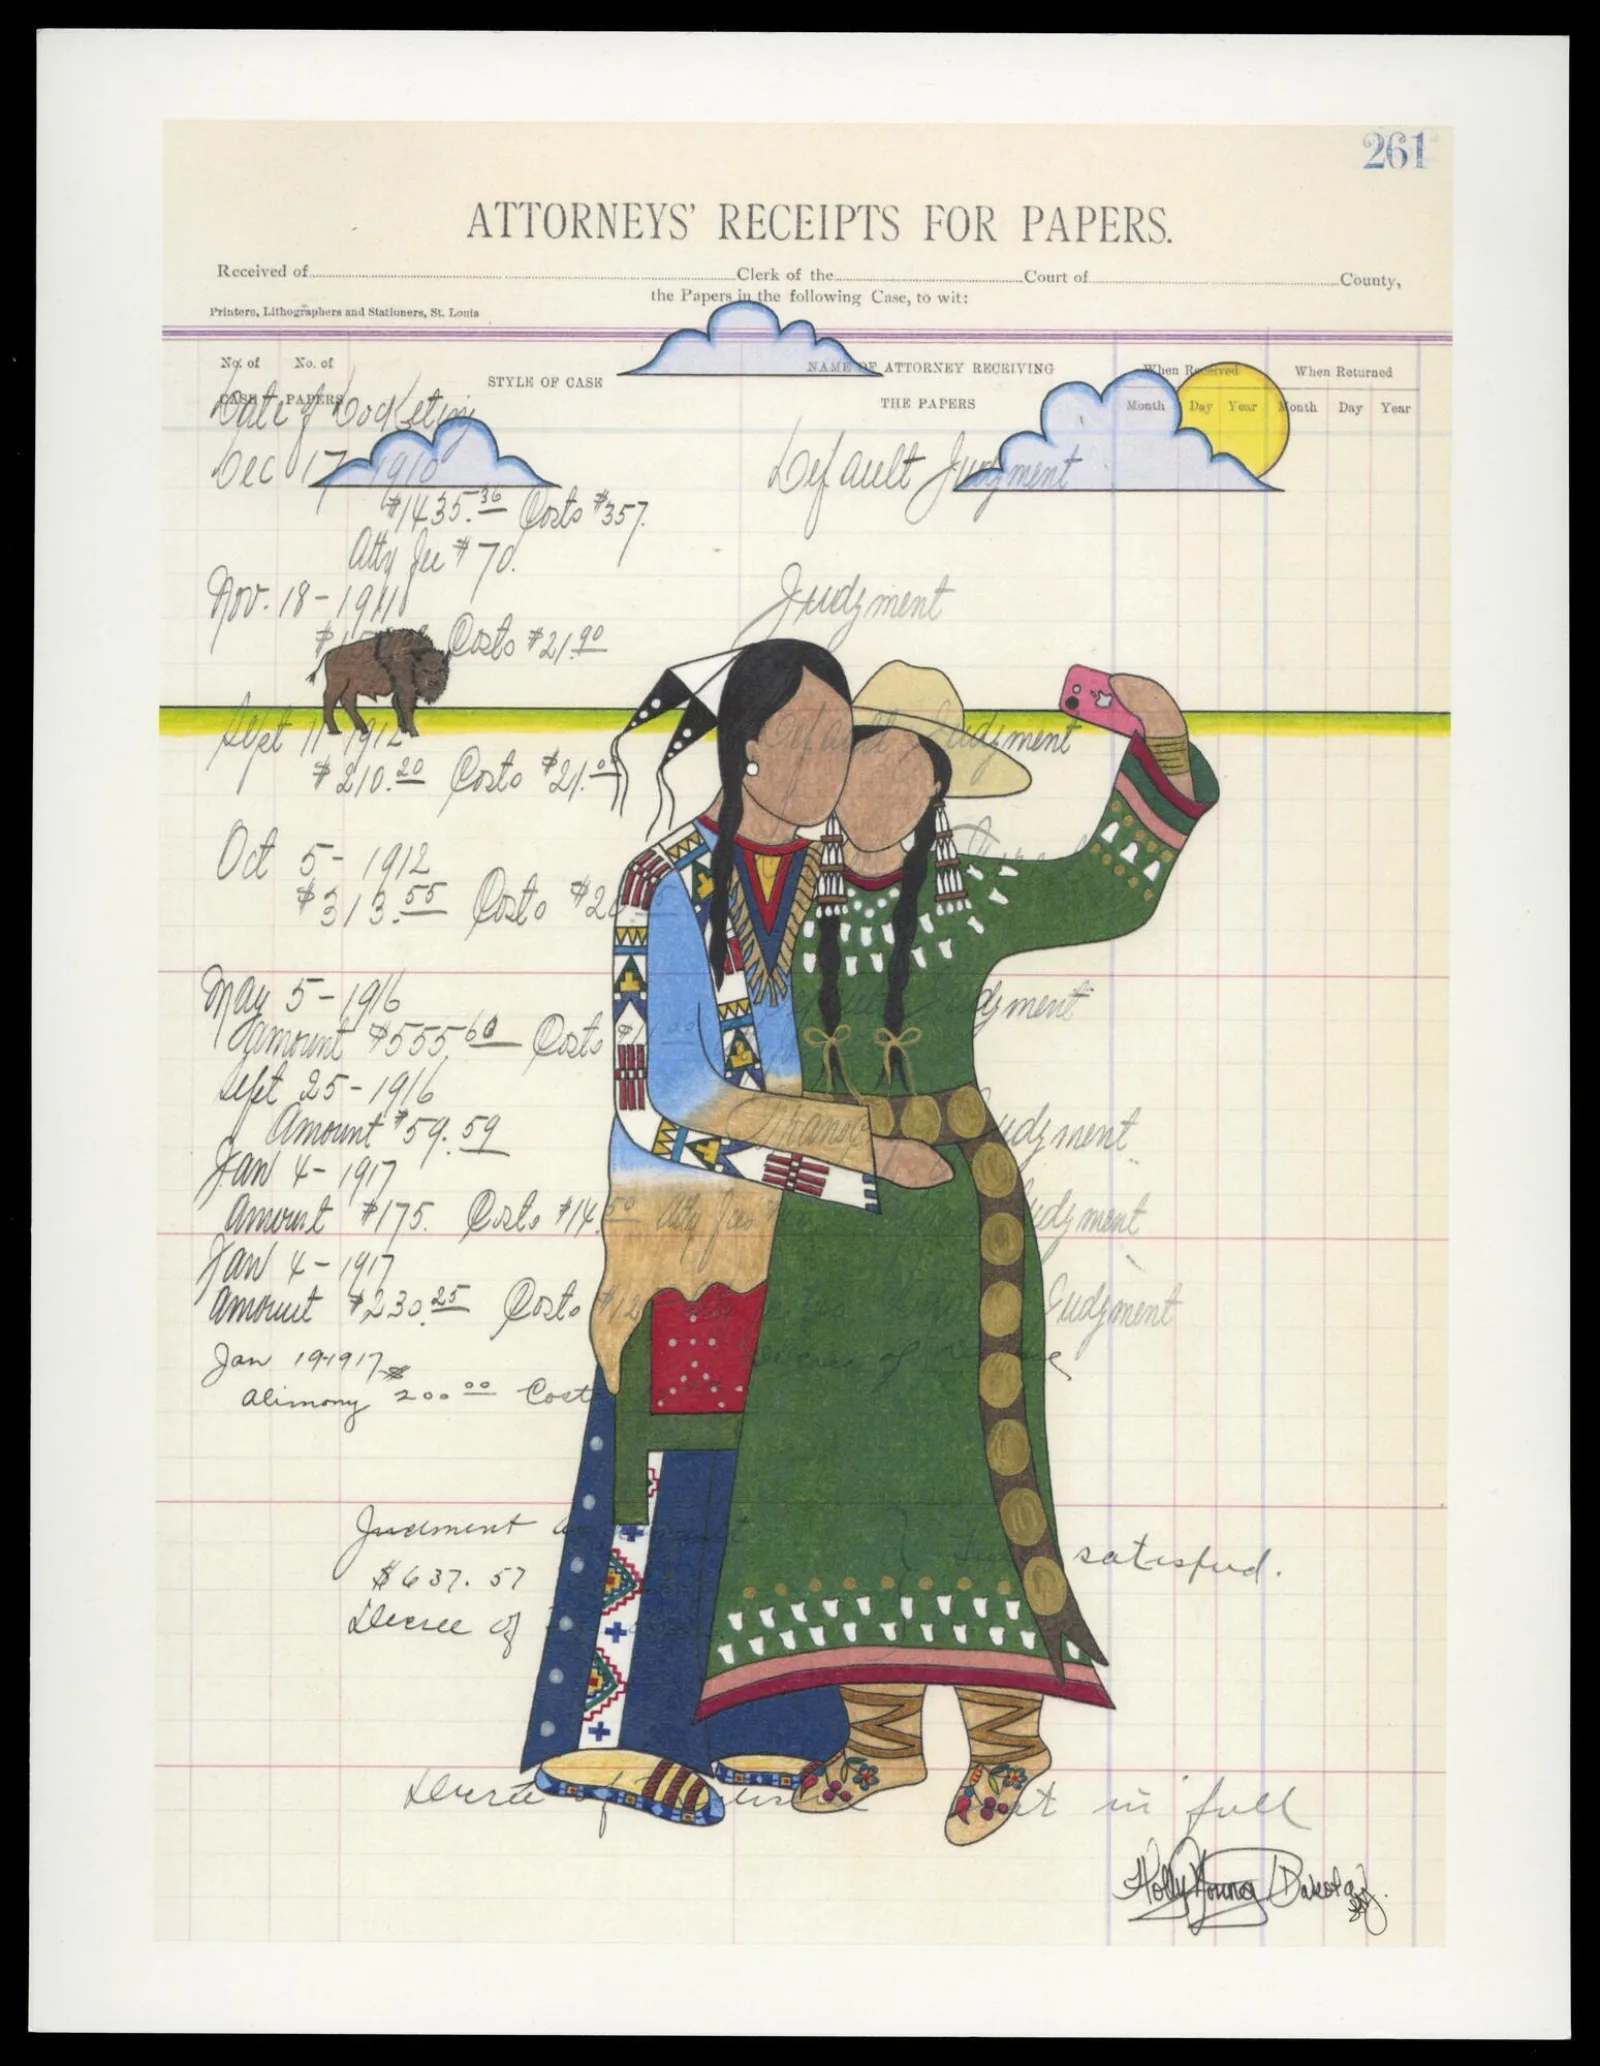 261
ATTORNEYS' RECEIPTS FOR PAPERS.
Received of Clerk of the Court of County,
the Papers in the following Case, to wit:
Printers, Lithographers and Stationers, St. Louis
No. of CASE No. of PAPERS STYLE OF CASE NAME OF ATTORNEY RECEIVING THE PAPERS When Received Month Day Year When Returned Month Day Year
Date of Docketing
Dec 17 1910 Default Judgment
$1435.36 Costs $357.
Atty fee $70.
Nov. 18-1911 Judgment
Costs $21.90
Sept 11 1912 Default Judgment
$210.20 Costs $21.
Oct 5-1912
$313.55 Costs $2
May 5-1916 Judgment
amount $555.60 Costs
Sept 25-1916
Amount $59.59 Judgment
Jan 4-1917
Amount $175. Costs $14.50 Atty fees Judgment
Jan 4-1917
Amount $230.25 Costs $12 Judgment
Jan 19-1917
alimony 200.00 Costs
Judment
$637.57 satisfied.
Decree of
Decree of in full
Holly Young Dakota